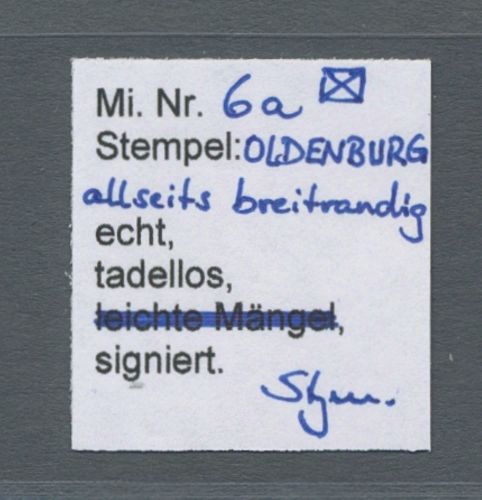 Mi. Nr. 6a ☒
Stempel: OLDENBURG
allseits breitrandig
echt,
tadellos,
leichte Mängel,
signiert.